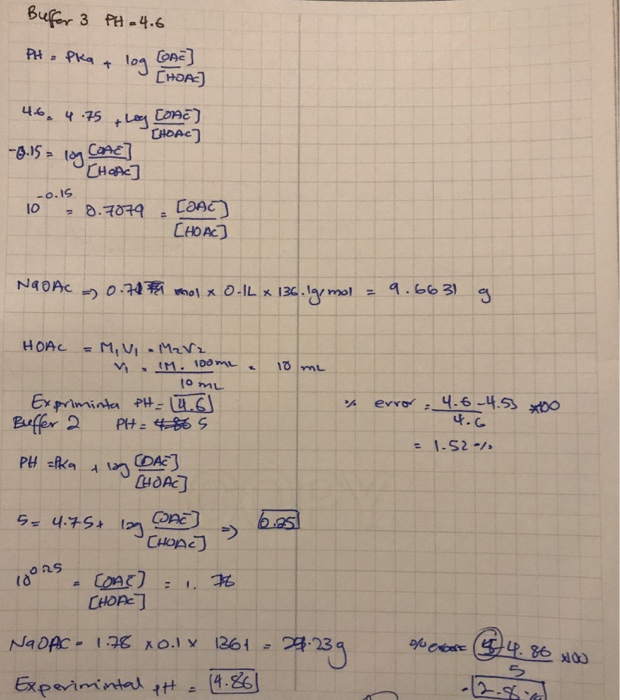 Buffer 3 PH = 4.6
PH = PKa + log [OAC̄]
[HOAC]
4.6 = 4.75 + Log [OAC̄]
[HOAC]
-0.15 = log [OAC̄]
[HOAC]
10^-0.15 = 0.7079 = [OAC̄]
[HOAC]
NaOAC => 0.71 mol × 0.1L × 136.1g/mol = 9.6631 g
HOAC = M₁V₁ = M₂V₂
V₁ = 1M. 100mL = 10 mL
10 mL
Expriminta PH = 4.6
% error = 4.6 - 4.53 ×100
4.6
= 1.52 %
Buffer 2 PH = 5
PH = PKa + log [OAC̄]
[HOAC]
5 = 4.75 + log [OAC̄] => 0.25
[HOAC]
10^0.25 = [OAC̄] = 1.78
[HOAC]
NaOAC = 1.78 × 0.1 × 1361 = 24.23g
% error = 5 - 4.86 ×100
5
Experimintal pH = 4.86
= 2.8 %